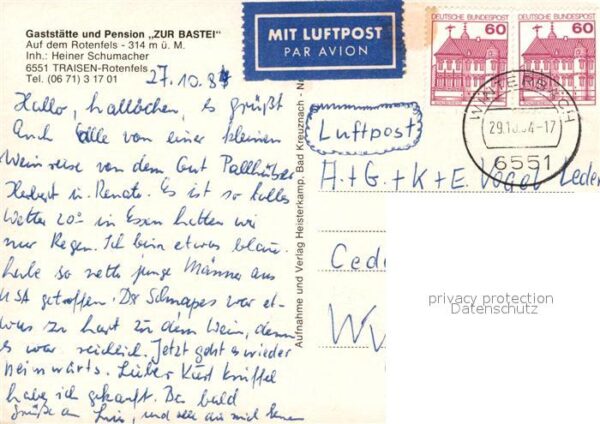 Gaststätte und Pension „ZUR BASTEI"
Auf dem Rotenfels - 314 m ü. M.
Inh.: Heiner Schumacher
6551 TRAISEN-Rotenfels
Tel. (06 71) 3 17 01
27.10.84
Hallo, hallöchen, es grüßt
Euch alle von einer kleinen
Weinreise von dem Gut
Herbert u. Renate. Es ist so tolles
Wetter 20° in Essen hatten wir
nur Regen. Ich bin etwas blau.
habe so nette junge Männer aus
USA getroffen. Der Schnapes war et-
was zu hart zu dem Wein, denn
es war reichlich. Jetzt geht es wieder
heimwärts. Lieber Kurt
habe ich gekauft. Bis bald
Grüße an und alle die mich kennen
Aufnahme und Verlag Heisterkamp, Bad Kreuznach - N
MIT LUFTPOST
PAR AVION
DEUTSCHE BUNDESPOST
60
DEUTSCHE BUNDESPOST
60
WINTERBACH
29.10.84-17
6551
Luftpost
A+G+K+E. Vogel Leder
Cede
W
privacy protection
Datenschutz